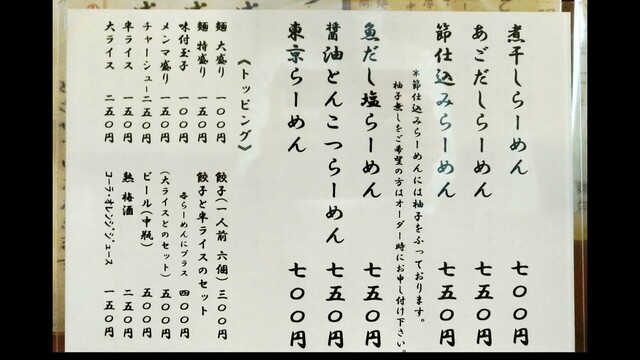 煮干しらーめん 七〇〇円
あごだしらーめん 七五〇円
節仕込みらーめん 七五〇円
※節仕込みらーめんには柚子をふっております。
柚子無しをご希望の方はオーダー時にお申し付け下さい。
魚だし塩らーめん 七五〇円
醤油とんこつらーめん 七五〇円
東京らーめん 七〇〇円
《トッピング》
麺 大盛り 一〇〇円
麺 特盛り 一五〇円
味付玉子 一〇〇円
メンマ盛り 一五〇円
チャーシュー 二五〇円
半ライス 一五〇円
大ライス 二五〇円
餃子(一人前 六個) 三〇〇円
餃子と半ライスのセット
各らーめんにプラス 四〇〇円
(大ライスとのセット) 五〇〇円
ビール(中瓶) 五〇〇円
熟 梅酒 二五〇円
コーラ・オレンジジュース 一五〇円